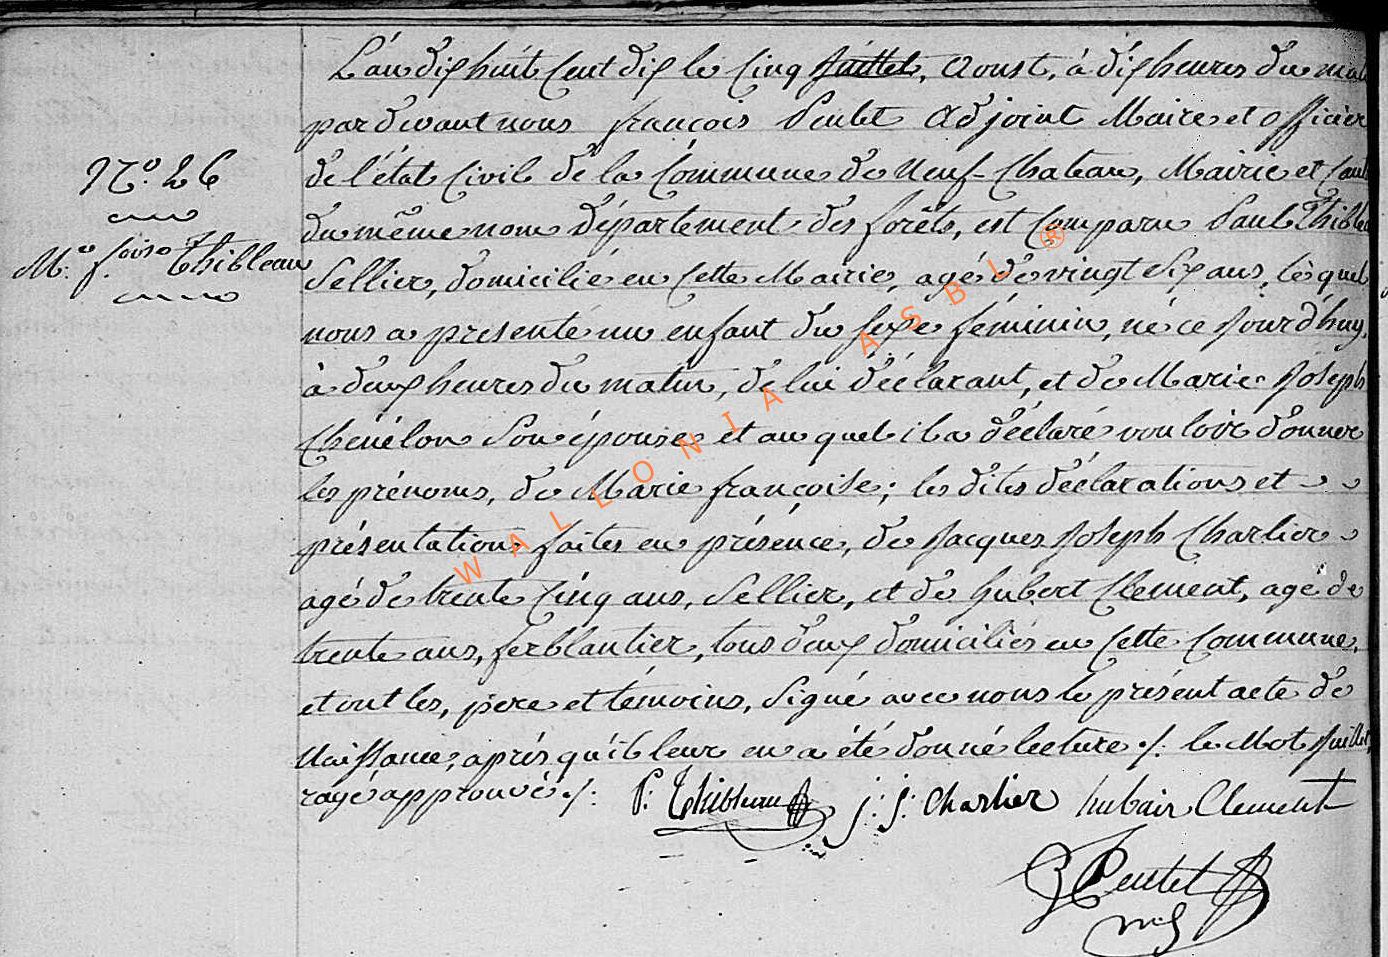 L'an dix huit Cent dix le Cinq Juillet, Aoust, à dix heures du mat
pardevant nous françois Peulet Adjoint Maire et officier
N.o 26
de l'état Civil de la Commune de Neuf-Chateau, Mairie et Cant
du même nom département des forêts, est Comparu Paul Thibleau
M.e f.oise Thibleau
Sellier, domicilié en Cette Mairie, agé de vingt Six ans, lequel
nous a présenté un enfant du sexe féminin, né ce Jourd'huy,
à deux heures du matin, de lui déclarant, et de Marie Joseph
Chenélon Son épouse et au quel il a déclaré vouloir donner
les prénoms, de Marie françoise; les dites déclarations et
présentation faites en présence, de Jacques Joseph Charlier
agé de trente Cinq ans, Sellier, et de hubert Clement, age de
trente ans, ferblantier, tous deux domiciliés en Cette Commune,
et ont les, père et témoins, Signé avec nous le présent acte de
Naissance, après qu'il leur en a été donné lecture ./. le Mot Juillet
rayé approuvé ./.
P: Thibleau j: j: Charlier hubair Clement
Peulet
WALLONIA ASBL ®